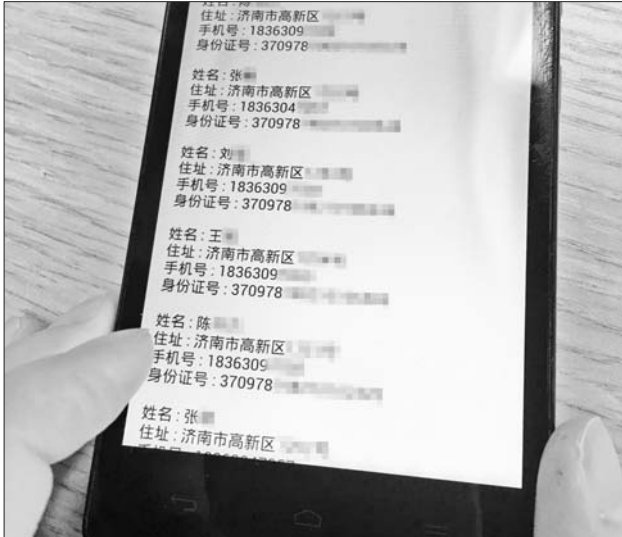 住址:济南市高新区
手机号:1836309
身份证号:370978
姓名:张
住址:济南市高新区
手机号:1836304
身份证号:370978
姓名:刘
住址:济南市高新区
手机号:1836309
身份证号:370978
姓名:王
住址:济南市高新区
手机号:1836309
身份证号:370978
姓名:陈
住址:济南市高新区
手机号:1836309
身份证号:370978
姓名:张
住址:济南市高新区